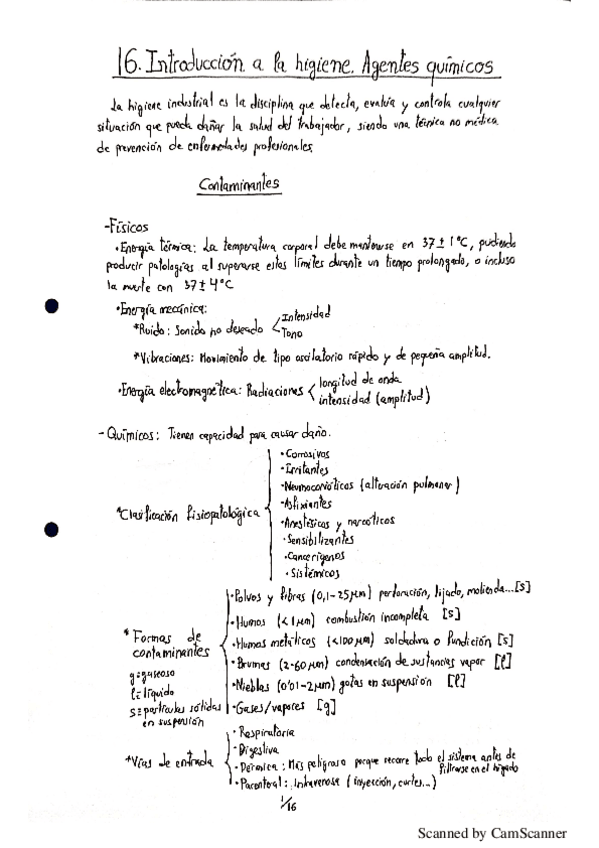 16. Introducción a la higiene. Agentes químicos
La higiene industrial es la disciplina que detecta, evalúa y controla cualquier
situación que pueda dañar la salud del trabajador, siendo una técnica no médica
de prevención de enfermedades profesionales.
Contaminantes
-Físicos
•Energía térmica: La temperatura corporal debe mantenerse en 37±1ºC, pudiendo
producir patologías al superarse estos límites durante un tiempo prolongado, o incluso
la muerte con 37±4ºC
•Energía mecánica:
*Ruido: Sonido no deseado < Intensidad
Tono
*Vibraciones: Movimiento de tipo oscilatorio rápido y de pequeña amplitud.
•Energía electromagnética: Radiaciones < longitud de onda
intensidad (amplitud)
-Químicos: Tienen capacidad para causar daño.
*Clasificación fisiopatológica
•Corrosivos
•Irritantes
•Neumoconióticos (alteración pulmonar)
•Asfixiantes
•Anestésicos y narcóticos
•Sensibilizantes
•Cancerígenos
•Sistémicos
* Formas de
contaminantes
g=gaseoso
l=líquido
s=partículas sólidas
en suspensión
•Polvos y fibras (0,1-25µm) perforación, lijado, molienda...[s]
•Humos (<1µm) combustión incompleta [s]
•Humos metálicos (<100µm) soldadura o fundición [s]
•Brumas (2-60µm) condensación de sustancias vapor [l]
•Nieblas (0'01-2µm) gotas en suspensión [l]
•Gases/vapores [g]
*Vías de entrada
•Respiratoria
•Digestiva
•Dérmica: Más peligroso porque recorre todo el sistema antes de
filtrarse en el hígado
•Parenteral: Intravenosa (inyección, cortes...)
1/16
Scanned by CamScanner